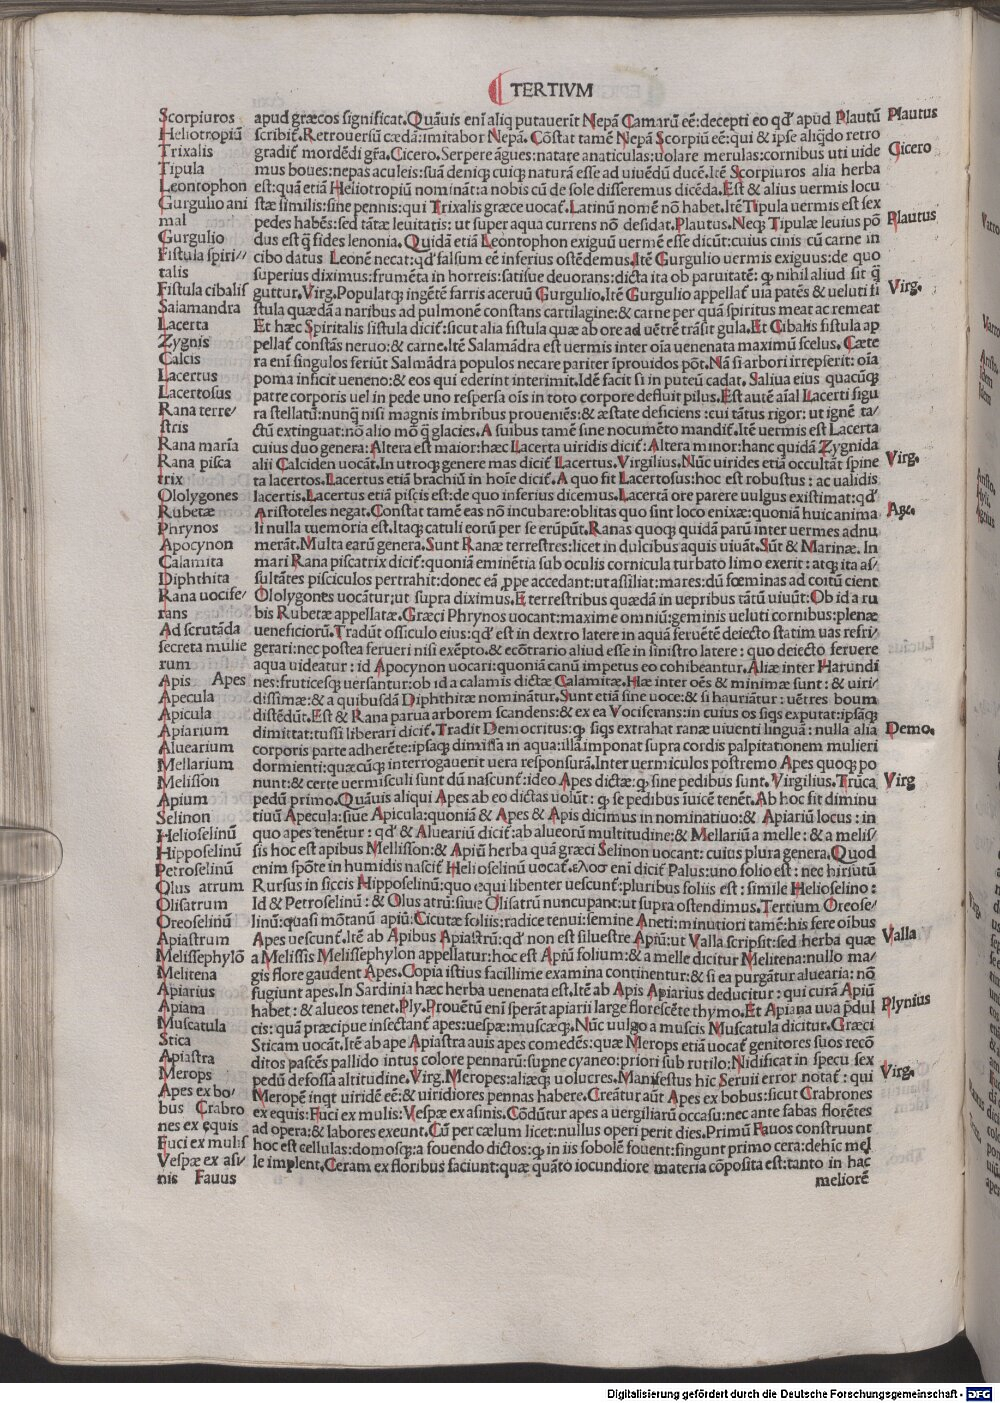 TERTIVM
Scorpiuros
Heliotropiū
Trixalis
Tipula
Leontophon
Gurgulio ani
mal
Gurgulio
Fistula spiri//
talis
Fistula cibalis
Salamandra
Lacerta
Zygnis
Calcis
Lacertus
Lacertosus
Rana terre/
stris
Rana maria
Rana pisca
trix
Ololygones
Rubetæ
Phrynos
Apocynon
Calamita
Diphthita
Rana uocife/
rans
Ad scrutāda
secreta mulie
rum
Apis Apes
Apecula
Apicula
Apiarium
Aluearium
Mellarium
Melisson
Apium
Selinon
Helioselinū
Hipposelinū
Petroselinū
Olus atrum
Olisatrum
Oreoselinū
Apiastrum
Melissephylō
Melitena
Apiarius
Apiana
Muscatula
Stica
Apiastra
Merops
Apes ex bo/
bus Crabro
nes ex equis
Fuci ex mulis
Vespæ ex asi/
nis Fauus
apud græcos significat. Quāuis enī aliq putauerīt Nepā Camarū eē: decepti eo qd' apud Plautū
scribit̃. Retrouersū cædā: imitabor Nepā. Cōstat tamē Nepā Scorpiū eē: qui & ipse aliq̇do retro
gradit̃ mordēdi gr̃a. Cicero. Serpere āgues: natare anaticulas: uolare merulas: cornibus uti uide
mus boues: nepas aculeis: suā deniq; cuiq; naturā esse ad uiuēdū ducē. Itē Scorpiuros alia herba
est: quā etiā Heliotropiū nominānt: a nobis cū de sole disseremus dicēda. Est & alius uermis locu
stæ similis: sine pennis: qui Trixalis græce uocat̃. Latinū nomē nō habet. Itē Tipula uermis est sex
pedes habēs: sed tātæ leuitatis: ut super aqua currens nō desidat. Plautus. Neq; Tipulæ leuius pō
dus est q̃ fides lenonia. Quidā etiā Leontophon exiguū uermē esse dicūt: cuius cinis cū carne in
cibo datus Leonē necat: qd' falsum eē inferius ostēdemus. Itē Gurgulio uermis exiguus: de quo
superius diximus: frumēta in horreis: satisue deuorans: dicta ita ob paruitatē: q nihil aliud sit q̃
guttur. Virg. Populatq; ingētē farris aceruū Gurgulio. Itē Gurgulio appellat̃ uia patēs & ueluti fi
stula quædā a naribus ad pulmonē constans cartilagine: & carne per quā spiritus meat ac remeat
Et hæc Spiritalis fistula dicit̃: sicut alia fistula quæ ab ore ad uētrē trāsit gula. Et Cibalis fistula ap
pellat̃ constās neruo: & carne. Itē Salamādra est uermis inter oīa uenenata maximū scelus. Cæte
ra enī singulos feriūt Salmādra populos necare pariter īprouidos pōt. Nā si arbori irrepserit: oīa
poma inficit ueneno: & eos qui ederint interimit. Idē facit si in puteū cadat. Saliua eius quacūq;
patre corporis uel in pede uno respersa oīs in toto corpore defluit pilus. Est autē aīal Lacerti figu
ra stellatū: nunq̃ nisi magnis imbribus proueniēs: & æstate deficiens: cui tātus rigor: ut ignē ta/
ctū extinguat: nō alio mō q̃ glacies. A suibus tamē sine nocumēto mandit̃. Itē uermis est Lacerta
cuius duo genera: Altera est maior: hæc Lacerta uiridis dicit̃: Altera minor: hanc quidā Zygnida
alii Calciden uocāt. In utroq; genere mas dicit̃ Lacertus. Virgilius. Nūc uirides etiā occultāt spine
ta lacertos. Lacertus etiā brachiū in hoīe dicit̃. A quo fit Lacertosus: hoc est robustus: ac ualidis
lacertis. Lacertus etiā piscis est: de quo inferius dicemus. Lacertā ore parere uulgus existimat: qd'
Aristoteles negat. Constat tamē eas nō incubare: oblitas quo sint loco enixæ: quoniā huic anima
li nulla memoria est. Itaq; catuli eorū per se erūpūt. Ranas quoq; quidā parū inter uermes adnu
merāt. Multa earū genera. Sunt Ranæ terrestres: licet in dulcibus aquis uiuāt. Sūt & Marinæ. In
mari Rana piscatrix dicit̃: quoniā eminētia sub oculis cornicula turbato limo exerit: atq; ita as/
sultātes pisciculos pertrahit: donec eā ꝓpe accedant: ut assiliat: mares: dū fœminas ad coitū cient
Ololygones uocātur; ut supra diximus. E terrestribus quædā in uepribus tātū uiuūt: Ob id a ru
bis Rubetæ appellatæ. Græci Phrynos uocant: maxime omniū: geminis ueluti cornibus: plenæ
ueneficiorū. Tradūt ossiculo eius: qd' est in dextro latere in aquā feruētē deiecto statim uas refri/
gerari: nec postea ferueri nisi exēpto. & ecōtrario aliud esse in sinistro latere: quo deiecto feruere
aqua uideatur: id Apocynon uocari: quoniā canū impetus eo cohibeantur. Aliæ inter Harundi
nes: fruticesq; uersantur: ob id a calamis dictæ Calamitæ. Hæ inter oēs & minimæ sunt: & uiri/
dissimæ: & a quibusdā Diphthitæ nominātur. Sunt etiā sine uoce: & si hauriātur: uētres boum
distēdūt. Est & Rana parua arborem scandens: & ex ea Vociferans: in cuius os siqs exputat: ipsāq;
dimittat: tussi liberari dicit̃. Tradit Democritus: q siqs extrahat ranæ uiuenti linguā: nulla alia
corporis parte adherēte: ipsaq; dimissa in aqua: illā imponat supra cordis palpitationem mulieri
dormienti: quæcūq; interrogauerit uera responsurā. Inter uermiculos postremo Apes quoq; po
nunt: & certe uermisculi sunt dū nascunt̃: ideo Apes dictæ: q sine pedibus sunt. Virgilius. Trūca
pedū primo. Quāuis aliqui Apes ab eo dictas uolūt: q se pedibus īuicē tenēt. Ab hoc fit diminu
tiuū Apecula: siue Apicula: quoniā & Apes & Apis dicimus in nominatiuo: & Apiariū locus: in
quo apes tenētur: qd' & Alueariū dicit̃: ab alueorū multitudine: & Mellariū a melle: & a melis/
sis hoc est apibus Mellisson: & Apiū herba quā græci Selinon uocant: cuius plura genera. Quod
enim spōte in humidis nascit̃ Helioselinū uocat̃. ελοσ eni dicit̃ Palus: uno folio est: nec hirsutū
Rursus in siccis Hipposelinū: quo equi libenter uescunt̃: pluribus foliis est: simile Helioselino:
Id & Petroselinū: & Olus atrū: siue Olisatrū nuncupant: ut supra ostendimus. Tertium Oreose/
linū: quasi mōtanū apiū: Cicutæ foliis: radice tenui: semine Aneti: minutiori tamē: his fere oībus
Apes uescunt̃. Itē ab Apibus Apiastrū: qd' non est siluestre Apiū: ut Valla scripsit: sed herba quæ
a Melissis Melissephylon appellatur: hoc est Apiū folium: & a melle dicitur Melitena: nullo ma/
gis flore gaudent Apes. Copia istius facillime examina continentur: & si ea purgātur aluearia: nō
fugiunt apes. In Sardinia hæc herba uenenata est. Itē ab Apis Apiarius deducitur: qui curā Apiū
habet: & alueos tenet. Ply. Prouētū enī sperāt apiarii large florescēte thymo. Et Apiana uua p̄dul
cis: quā præcipue insectant̃ apes: uespæ: muscæq;. Nūc uulgo a muscis Muscatula dicitur. Græci
Sticam uocāt. Itē ab ape Apiastra auis apes comedēs: quæ Merops etiā uocat̃ genitores suos recō
ditos pascēs pallido intus colore pennarū: supne cyaneo: priori sub rutilo: Nidificat in specu sex
pedū defossa altitudine. Virg. Meropes: aliæq; uolucres. Manifestus hic Seruii error notat̃: qui
Meropē inqt uiridē eē: & uiridiores pennas habere. Creātur aūt Apes ex bobus: sicut Crabrones
ex equis: Fuci ex mulis: Vespæ ex asinis. Cōdūtur apes a uergiliarū occasu: nec ante fabas florētes
ad opera: & labores exeunt. Cū per cælum licet: nullus operi perit dies. Primū Fauos construunt
hoc est cellulas: domosq;: a fouendo dictos: q in iis sobolē fouent: singunt primo cera: dehic mel
le implent. Ceram ex floribus faciunt: quæ quāto iocundiore materia cōposita est: tanto in hac
meliorē
Plautus
Cicero
Plautus
Virg.
Virg.
Demo.
Virg
Valla
Plynius
Virg.
Digitalisierung gefördert durch die Deutsche Forschungsgemeinschaft - DFG